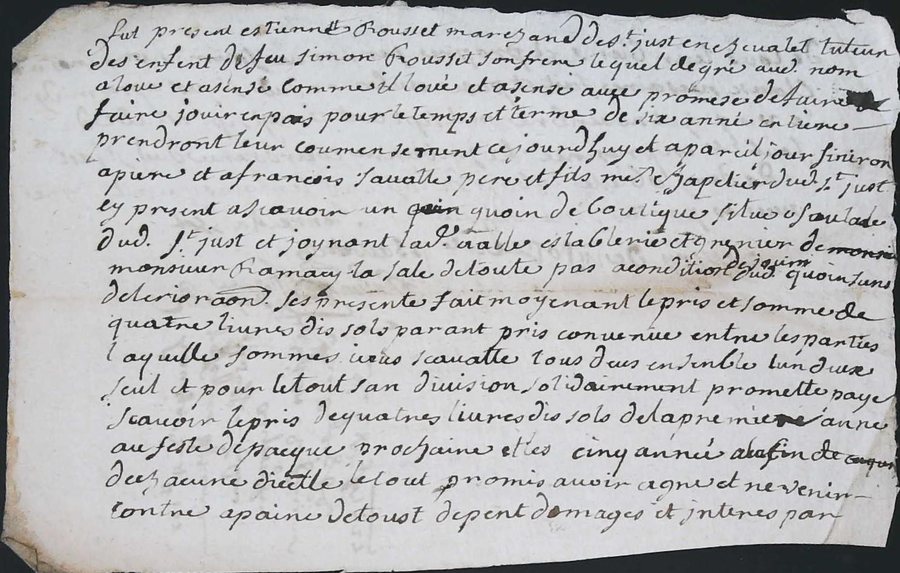 fut present estienne Rousset marchand de st. just en chevalet tuteur
des enfent de feu simon Rousset son frere lequel de gré aud. nom
a loué et asensé comme il loue et asense avec promese de faire
faire jouir en pais pour le temps et terme de six anné entiere
prendront leur coumensement ce jourd'huy et a pareil jour finiron
a piere et a francois savatte pere et fils mes. chapelier dud. st. just
cy present a scavoir un quoin de boutique situé
dud. st. just et joynant lad. establerie et grenier de
monsieur Ramacy la sale de toute pas a condition de jouir dud. quoin sens
deterioraon. ses presente fait moyenant le pris et somme de
quatre livres dis sols par ant pris convenue entre les parties
laquelle sommes iceus scavatte tous deus ensemble lun deux
seul et pour le tout san division solidairement promette paye
scavoir le pris de quatres livres dis sols de la premiere anne
au feste de pacque prochaine et les cinq anné a la fin de
de chacune dicelle le tout promis avoir agre et ne venir
contre a paine de toust depent domages et interes par